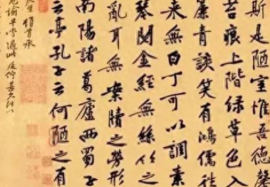 斯是陋室惟吾德馨
苔痕上階緑草色入
簾青談笑有鴻儒往
来無白丁可以調素
琴閱金經無絲竹之
亂耳無案牘之勞形
南陽諸葛廬西蜀子
云亭孔子云何陋之有